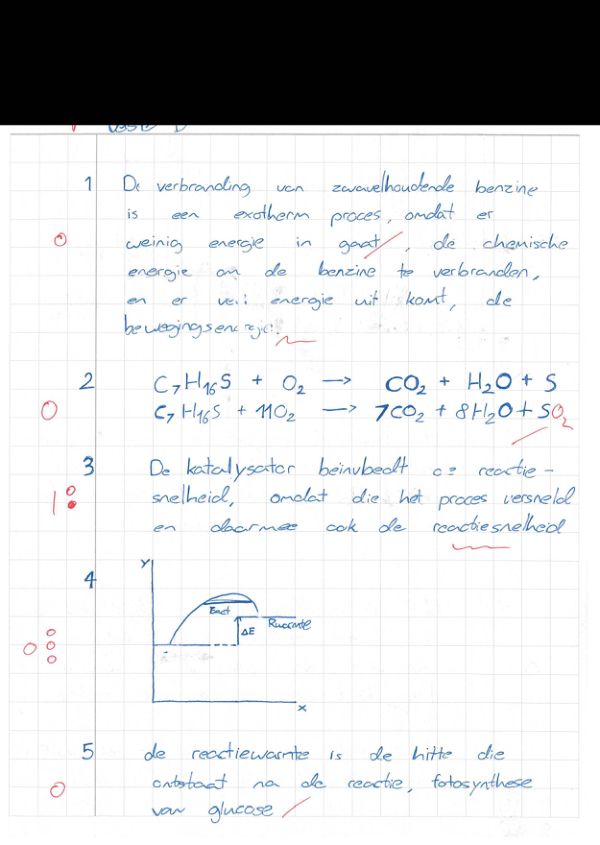 1 De verbranding van zwavelhoudende benzine
is een exotherm proces, omdat er
0 weinig energie in gaat, de chemische
energie om de benzine te verbranden,
en er veel energie uit komt, de
bewegingsenergie.
2 C7H16S + O2 → CO2 + H2O + S
0 C7H16S + 11O2 → 7CO2 + 8H2O + SO2
3 De katalysator beinvloedt de reactie-
1 snelheid, omdat die het proces versneld
en daarmee ook de reactiesnelheid
4 Y
Eact
ΔE
0
x
5 de reactiewarmte is de hitte die
ontstaat na de reactie, fotosynthese
0 van glucose